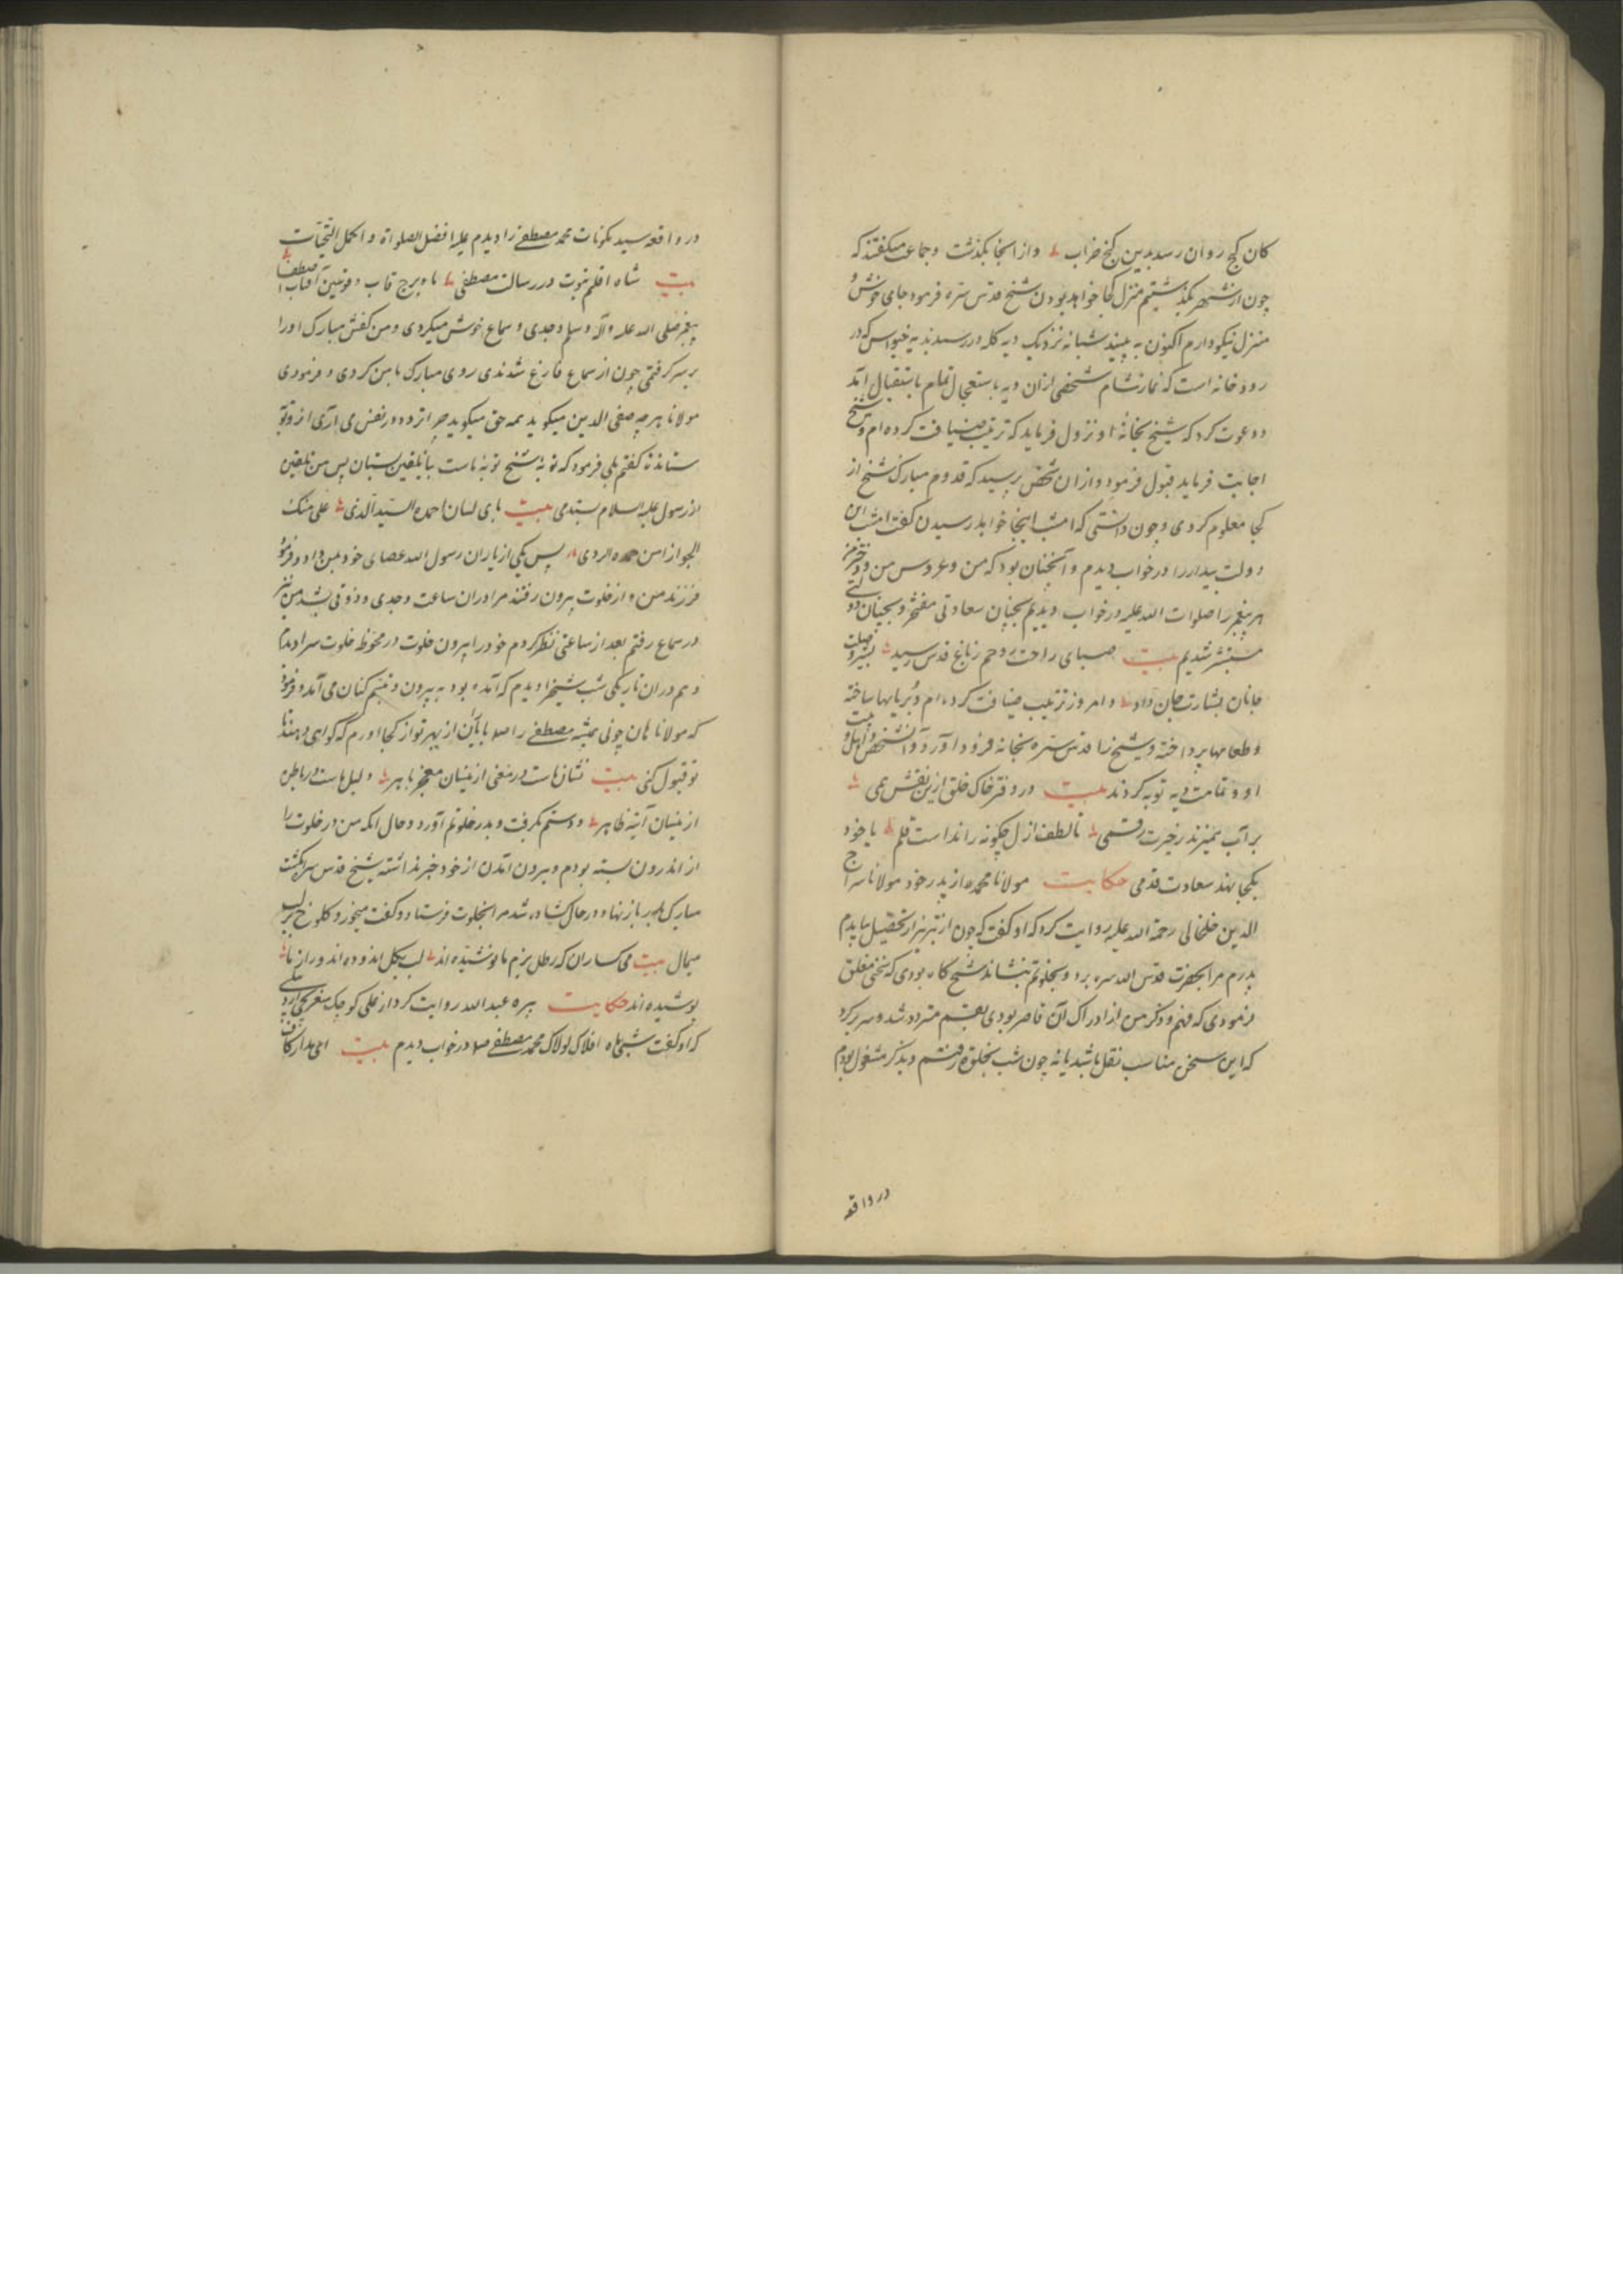 کان گنج روان رسد بدین کنج خراب و از آنجا بکذشت و جماعت میکفتند که
چون از شهر بگذشتیم منزل کجا خواهد بودن شیخ قدس سره فرمود جای خوش و
منزل نیکو دارم اکنون به بینید شبانه نزدیک دیه کله در رسیدند به که در
رودخانه است که نماز شام شخصی از آن دیه باستعجال تمام باستقبال آمد
و دعوت کرد که شیخ بخانه او نزول فرماید که ترتیب ضیافت کرده‌ام و شیخ
اجابت فرماید قبول فرمود و از آن شخص پرسید که قدوم مبارک شیخ از
کجا معلوم کردی و چون دانستی که امشب اینجا خواهد رسیدن کفت امشب این
دولت بیدار را در خواب دیدم و آنچنان بود که من و عروس من و دخترم
هر پیغمبر را صلوات الله علیه در خواب دیدیم بچنان سعادتی مفتخر و بچنان دولتی
مستبشر شدیم بیت صبای راحت روحم ز باغ قدس رسید بشیر وصلت
جانان بشارت جان داد و امروز ترتیب ضیافت کرده‌ام و بریانیها ساخته
و طعامها پرداخته و شیخ را قدس سره بخانه فرود آورد و آن شخص و اهل بیت
او و تمامت دیه توبه کردند بیت در دفتر خاک خلق ازین نقش همی
بر آب میزند ز خیرت رقمی تا لطف ازل چکونه رانداست قلم یا خود
بکجا نهد سعادت قدمی حکایت مولانا محمد از پدر خود مولانا سراج
الدین خلخالی رحمة الله علیه روایت کرد که او کفت که چون از تبریز از تحصیل بیامدم
پدرم مرا بحضرت قدس الله سره برد و بخلوتم بنشاند شیخ کاه بودی که سخنی مغلق
فرمودی که فهم و ذکر من از ادراک آن قاصر بودی نفسم متردد شد و سر برکرد
که این سخن مناسب نقل باشد یا نه چون شب بخلوة رفتم و بذکر مشغول بودم
در واقعه
در واقعه سید مکونات محمد مصطفی را دیدم علیه افضل الصلواة و اکمل التحیات
بیت شاه اقلیم نبوت در رسالت مصطفی ماه برج قاب قوسین آفتاب اصطفا
پیغمبر صلی الله علیه و آله و سلم وجدی و سماع خوش میکردی و من کفش مبارک او را
بر سر کرفتمی چون از سماع فارغ شدندی روی مبارک با من کردی و فرمودی
مولانا هرچه صفی الدین میکوید همه حق میکوید چرا تردد در نفس می آری از و توبه
ستانده کفتم بلی فرمود که توبه شیخ توبه ماست بیا تلقین بستان پس من تلقین
از رسول علیه السلام ستدمی بیت بای لسان احمد السید الذی علی منک
پس یکی از یاران رسول الله عصای خود بمن داد و فرمود
فرزند من و از خلوت بیرون رفتند مرا در آن ساعت وجدی و ذوقی بشد من نیز
در سماع رفتم بعد از ساعتی نظر کردم خود را بیرون خلوت در محوطه خلوت سرا دیدم
و هم در آن تاریکی شب شیخ را دیدم که آمده بود به بیرون و تبسم کنان می آمد و فرمود
که مولانا هان چونی همیشه مصطفی را از بهر تو از کجا آورم که کواهی دهند تا
تو قبول کنی بیت نشان هاست در معنی ازینسان معجز باهر دلیل هاست در باطن
ازینسان آیت ظاهر و دستم بکرفت و بدر خلوتم آورد و حال آنکه من در خلوت را
از اندرون بسته بودم و بیرون آمدن از خود خبر نداشته شیخ قدس سره انکشت
مبارک بر در باز نهاد و در حال کشاده شد مرا بخلوت فرستاد و کفت میخور و کلوخ بر لب
میمال بیت می کساران که رطل بزم ما نوشیده‌اند لب بکل اندوده‌اند و راز ما
پوشیده‌اند حکایت پیره عبدالله روایت کرد از علی کوچک
که او کفت شبی ماه افلاک لولاک محمد مصطفی در خواب دیدم بیت